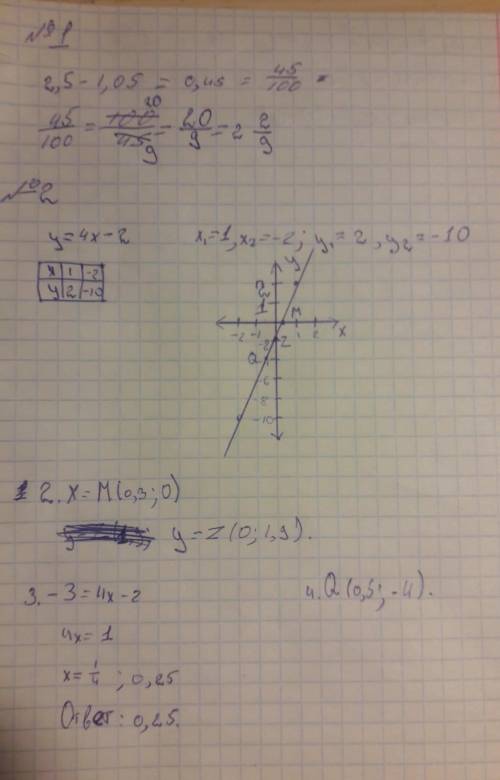 №1
2,5 - 1,05 = 0,45 = 45/100 =
45/100 = 100 20/45 9 = 20/9 = 2 2/9
№2
y = 4x - 2
x₁=1, x₂=-2; y₁=2, y₂=-10
x 1 -2
y 2 -10
y
2
1
M
-2 -1 1 2 x
-2 Z
Q
-6
-8
-10
2. X = M(0,3; 0)
y = Z(0; 1,9).
3. -3 = 4x - 2
4. Q(0,5; -4).
4x = 1
x = 1/4 ; 0,25
Ответ: 0,25.